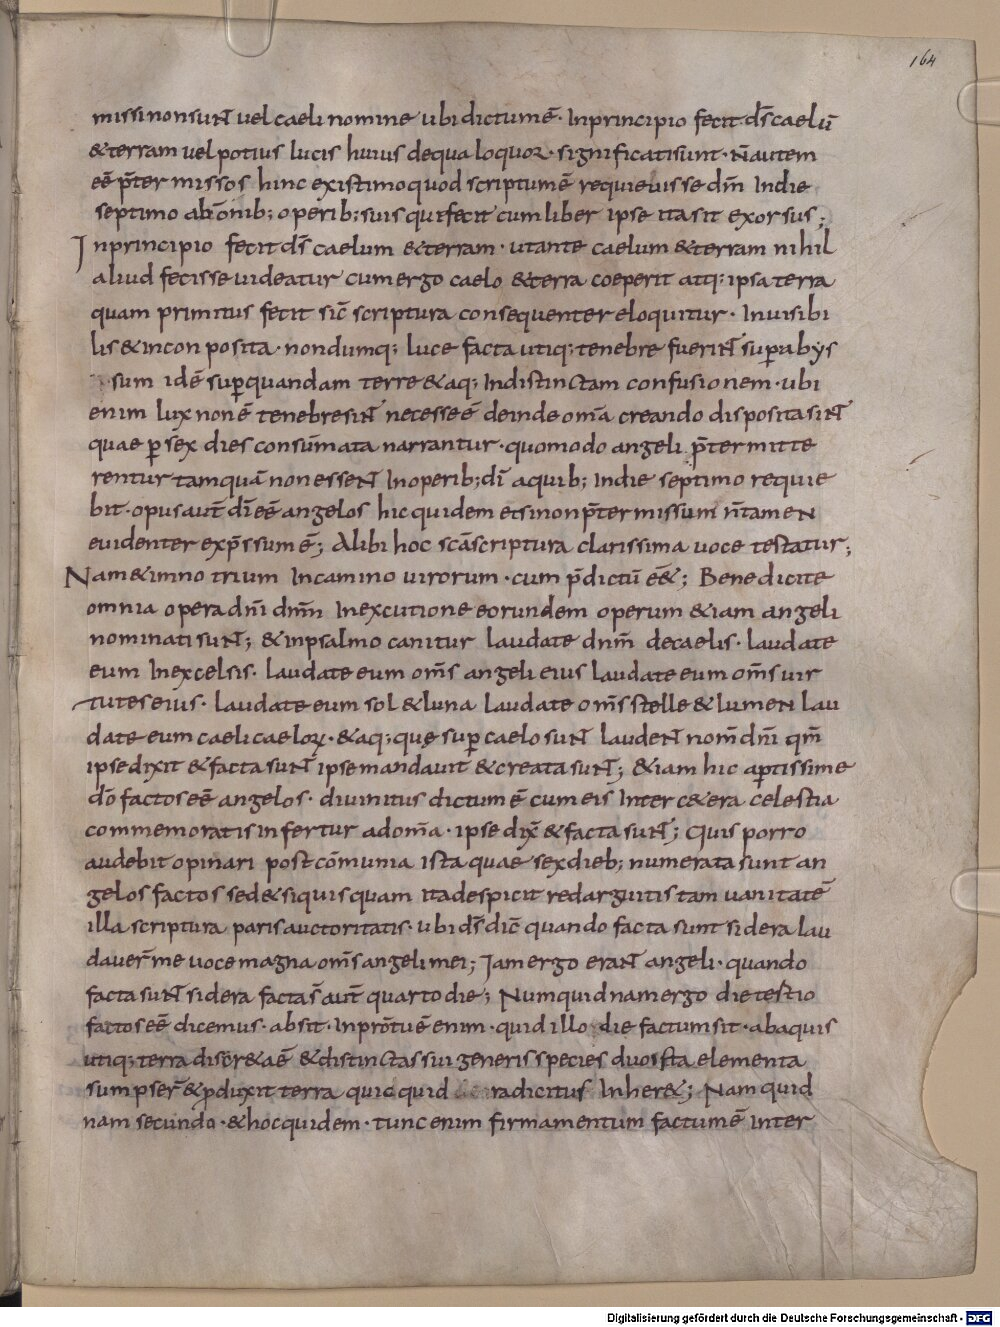 164
missi non suNt uel caeli nomine ubi dictum ē· In principio fecit d̄s caelū
& terram uel potius lucis huius de qua loquor· significati sunt· N̄ autem
eē p̄termissos hinc existimo quod scriptum ē requieuisse dm̄ In die
septimo ab om̄ib; operib; suis qui fecit cum liber ipse ita sit exorsus;
In principio fecit d̄s caelum & terram· ut ante caelum & terram nihil
aliud fecisse uideatur cum ergo caelo & terra coeperit atq; ipsa terra
quam primitus fecit sic̄ scriptura consequenter eloquitur· Inuisibi
lis & inconposita· nondumq; luce facta utiq; tenebre fueriNt super abys
sum id ē sup̲ quandam terre & aq; Indistinctam confusionem· ubi
enim lux non ē tenebre siNt necesse ē deinde om̄a creando disposita siNt
quae p̲ sex dies consūmata narrantur· quomodo angeli p̄termitte
rentur tamquā non esseNt In operib; dī a quib; In die septimo requie
bit· opus aut̄ dī eē angelos hic quidem etsi non p̄termissum n̄ tameN
euidenter exp̄ssum ē; Alibi hoc sc̄a scriptura clarissima uoce testatur;
Nam & imno trium In camino uirorum· cum p̄dictū eē&; Benedicite
omnia opera dn̄i dnm̄ In excutione eorundem operum & iam angeli
nominati suNt; & in psalmo canitur laudate dnm̄ de caelis· laudate
eum In excelsis· laudate eum om̄s angeli eius laudate eum om̄s uir
tutes eius· laudate eum sol & luna laudate om̄s stelle & lumeN lau
date eum caeli caeloꝝ· & aq; quę sup̲ caelo suNt laudeNt nom̄ dn̄i qm̄
ipse dixit & facta suNt ipse mandauit & creata suNt; & iam hic ap̲tissime
dō factos eē angelos· diuinitus dictum ē cum eis Inter c&era celestia
commemoratis infertur ad om̄a· ipse dix̄ & facta suNt; Quis porro
audebit opinari post cōmunia ista quae sex dieb; numerata sunt an
gelos factos sed & si quisquam ita despicit redarguit istam uanitatē
illa scriptura paris auctoritatis· ubi d̄s dic̄ quando facta sunt sidera lau
dauer̄ me uoce magna om̄s angeli mei; Iam ergo eraNt angeli· quando
facta suNt sidera facta s̄ aut̄ quarto die; Numquidnam ergo die tertio
factos eē dicemus· absit· In prōtu ē enim· quid illo die factum sit· ab aquis
utiq; terra discr&a ē & distinctas sui generis species duo ista elementa
sumpser̄ & p̲duxit terra quicquid radicitus Inher&; Nam quid
nam secundo· & hoc quidem· tunc enim firmamentum factum ē Inter
Digitalisierung gefördert durch die Deutsche Forschungsgemeinschaft - DFG